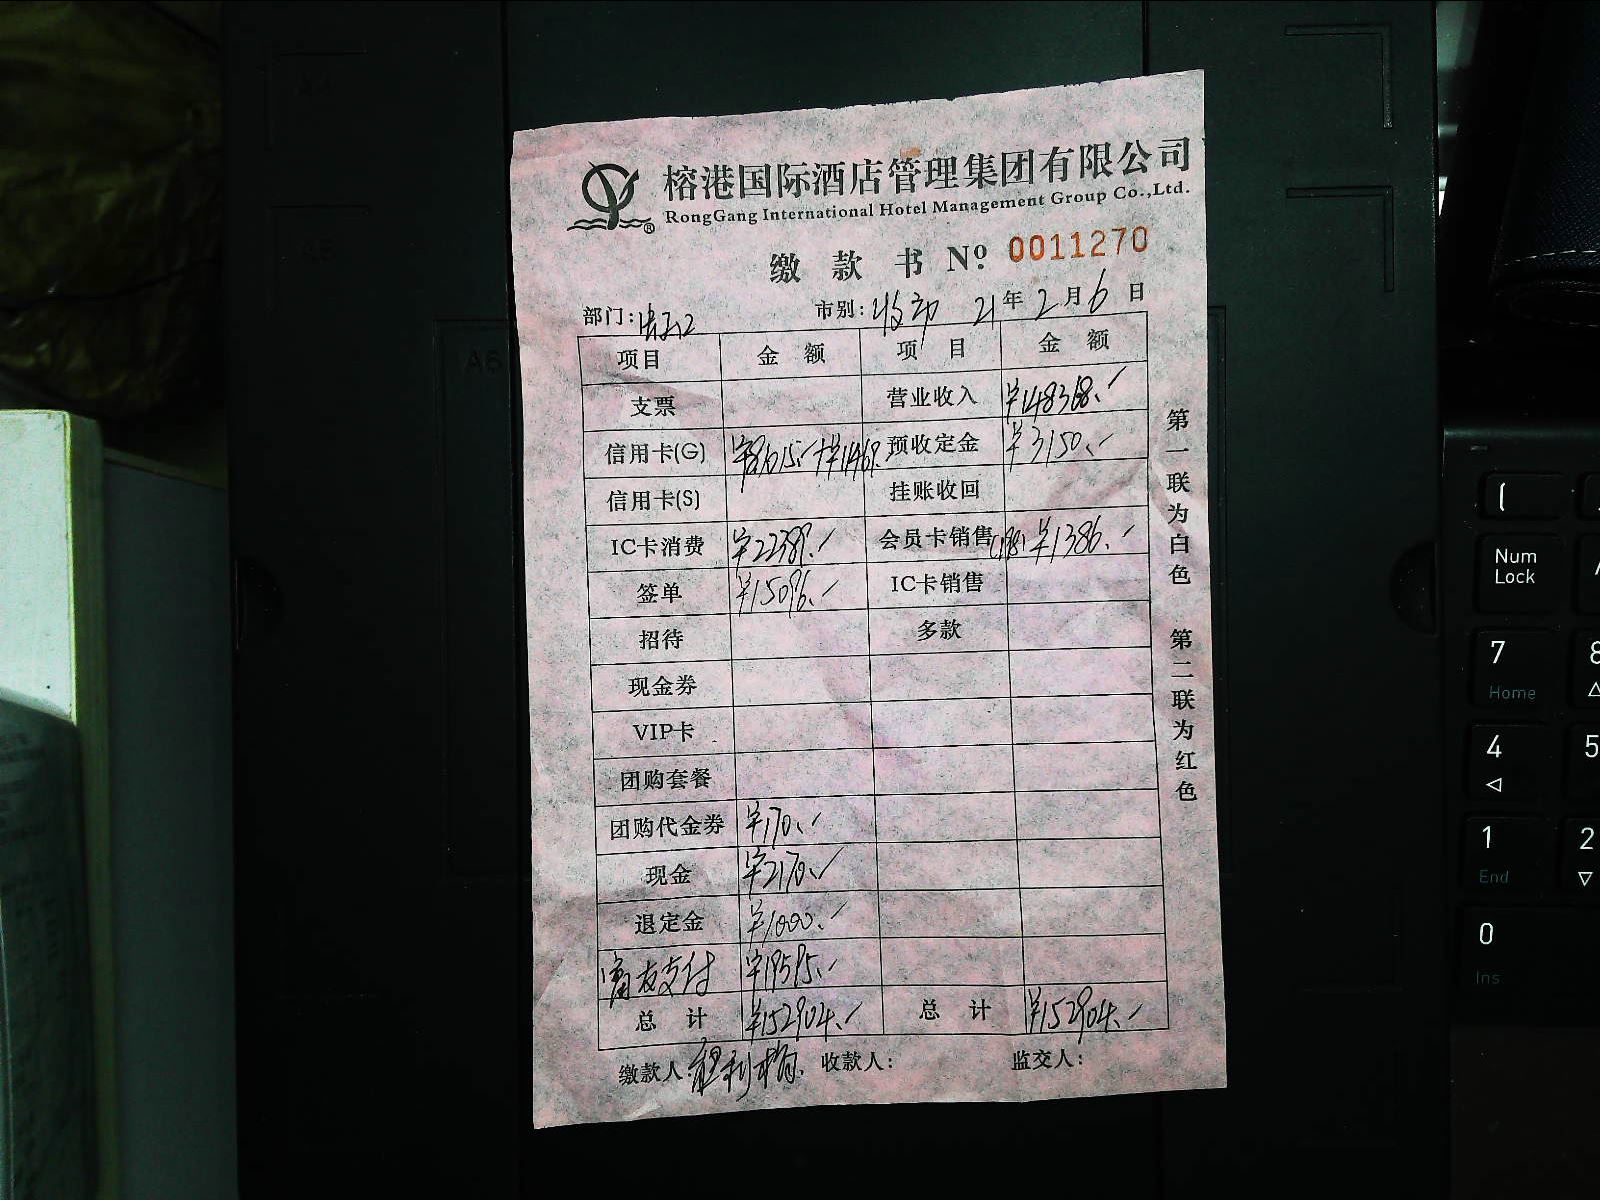 榕港国际酒店管理集团有限公司
RongGang International Hotel Management Group Co.,Ltd.
缴款书 Nº 0011270
部门: 市别: 21年2月6日
项目 金额 项目 金额
支票 营业收入 ¥148368.
信用卡(G) 预收定金 ¥3150.
信用卡(S) 挂账收回
IC卡消费 ¥22389. 会员卡销售 (198) ¥1386.
签单 ¥15096. IC卡销售
招待 多款
现金券
VIP卡
团购套餐
团购代金券 ¥170.
现金 ¥2170.
退定金 ¥1000.
支付
总计 ¥152904. 总计 ¥152904.
缴款人: 收款人: 监交人:
第一联为白色 第二联为红色
A4
A5
A6
(
Num
Lock
7
Home
8
4
5
1
End
2
0
Ins